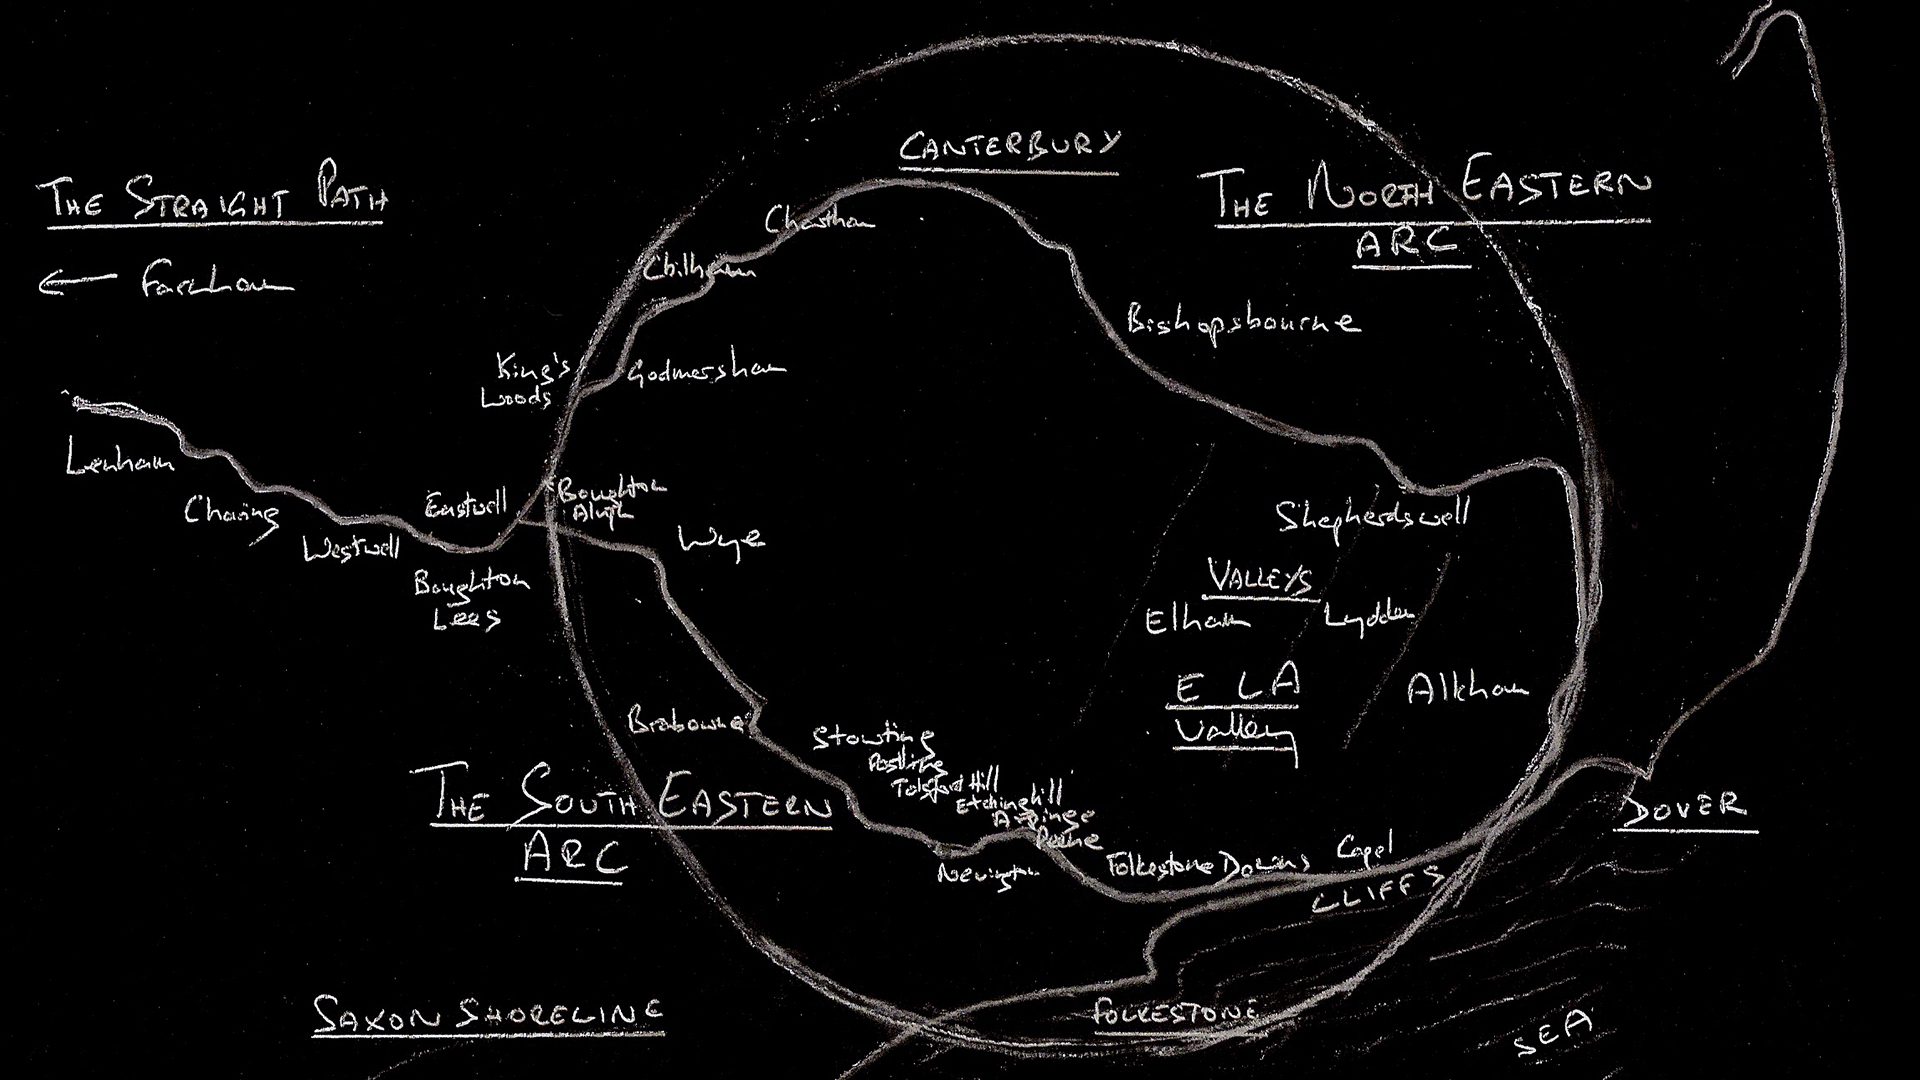 CANTERBURY
THE STRAIGHT PATH
← Farnham
THE NORTH EASTERN
ARC
Chartham
Chilham
Bishopsbourne
King's
Woods
Godmersham
Lenham
Charing
Westwell
Eastwell
Boughton
Aluph
Wye
Boughton
Lees
Shepherdswell
VALLEYS
Elham
Lydden
E L A
Valley
Alkham
Brabourne
Stowting
Postling
Tolsford Hill
Etchinghill
Arpinge
Peene
Newington
THE SOUTH EASTERN
ARC
Folkestone Downs
Capel
CLIFFS
DOVER
SAXON SHORELINE
FOLKESTONE
SEA